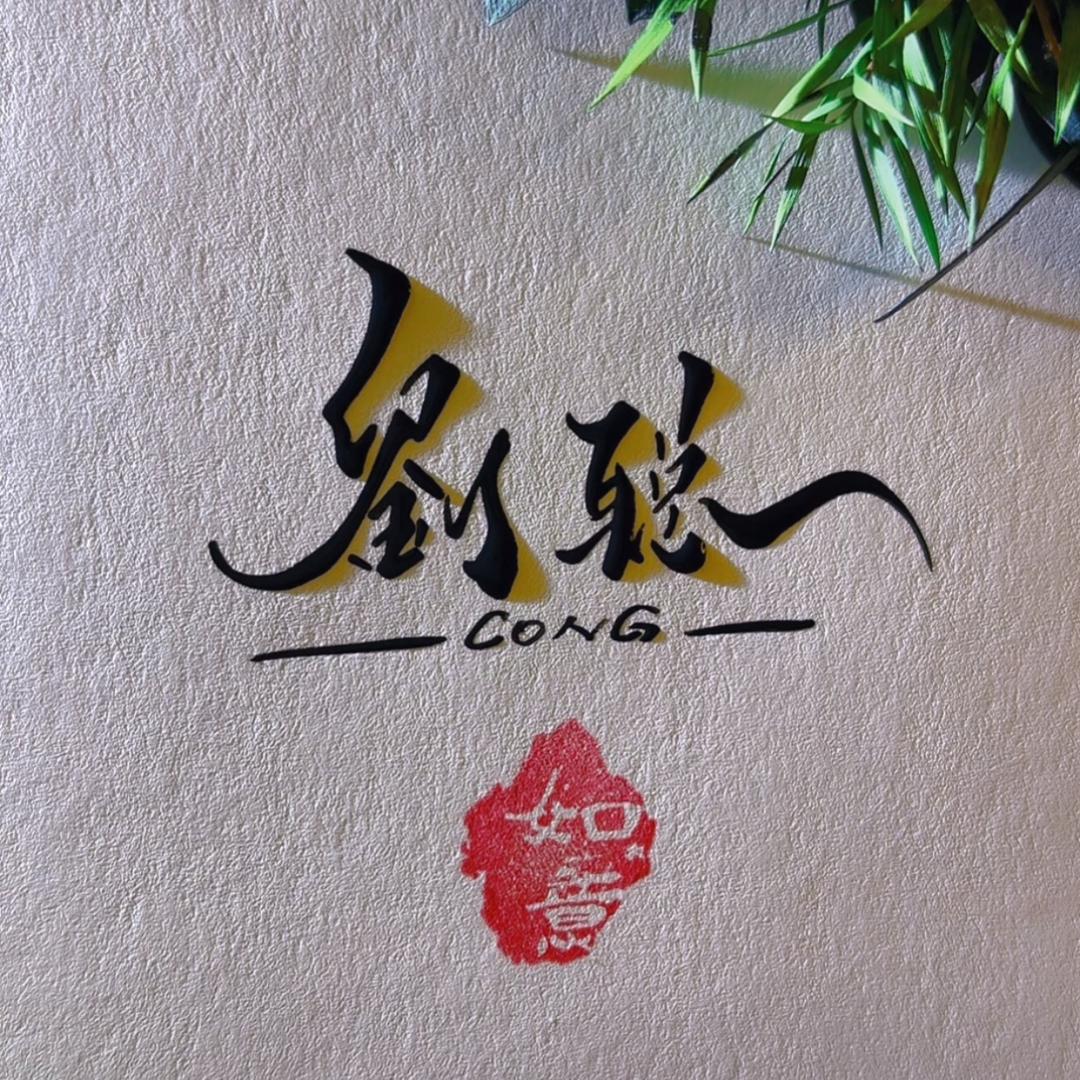 劉聪
CONG
如
意